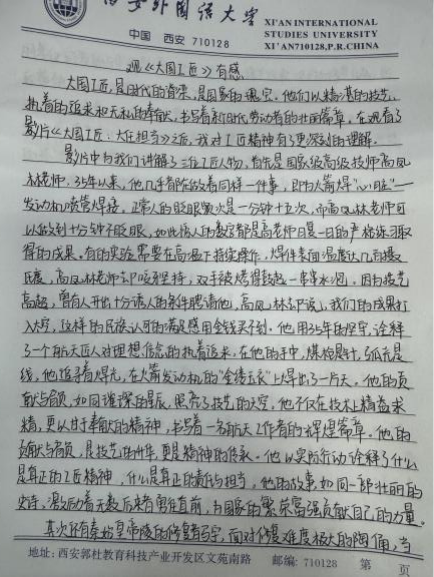 西安外国语大学
中国 西安 710128
XI'AN INTERNATIONAL
STUDIES UNIVERSITY
XI'AN710128,P.R.CHINA
观《大国工匠》有感
大国工匠,是时代的脊梁,是国家的瑰宝。他们以精湛的技艺、
执着的追求和无私的奉献,书写着新时代劳动者的壮丽篇章。在观看了
影片《大国工匠:大任担当》之后,我对工匠精神有了更深刻的理解。
影片中向我们讲解了三位工匠人物,首先是国家级高级技师高凤
林老师,35年以来,他几乎都在做着同样一件事,即为火箭焊“心脏”—
发动机喷管焊接。正常人的眨眼频次是一分钟十五次,而高凤林老师可
以做到十分钟不眨眼,如此惊人的数字都是高老师日复一日的严格练习取
得的成果。有的实验需要在高温下持续操作,焊件表面温度达几百摄
氏度,高凤林老师却咬牙坚持,双手被烤得鼓起一串串水泡。因为技艺
高超,曾有人开出十分诱人的条件聘请他,高凤林却说,我们的成果打
入太空,这样的民族认可的满足感用金钱买不到。他用35年的坚守,诠释
了一个航天匠人对理想信念的执着追求。在他的手中,焊枪是针,弧光是
线,他追寻着焊光,在火箭发动机的“金缕玉衣”上焊出了一片天。他的贡
献与奋斗,如同璀璨的星辰,照亮了技艺的天空,他不仅在技术上精益求
精,更以甘于奉献的精神,书写着一名航天工作者的辉煌篇章。他的
贡献与奋斗,是技艺的升华,更是精神的传承。他以实际行动诠释了什么
是真正的工匠精神,什么是真正的责任与担当,他的故事如同一部壮丽的
史诗,激励着无数后来者勇往直前,为国家的繁荣富强贡献自己的力量。
其次还有秦始皇帝陵的修复专家,面对修复难度极大的陶俑,当
地址:西安郭杜教育科技产业开发区文苑南路 邮编:710128 第 页